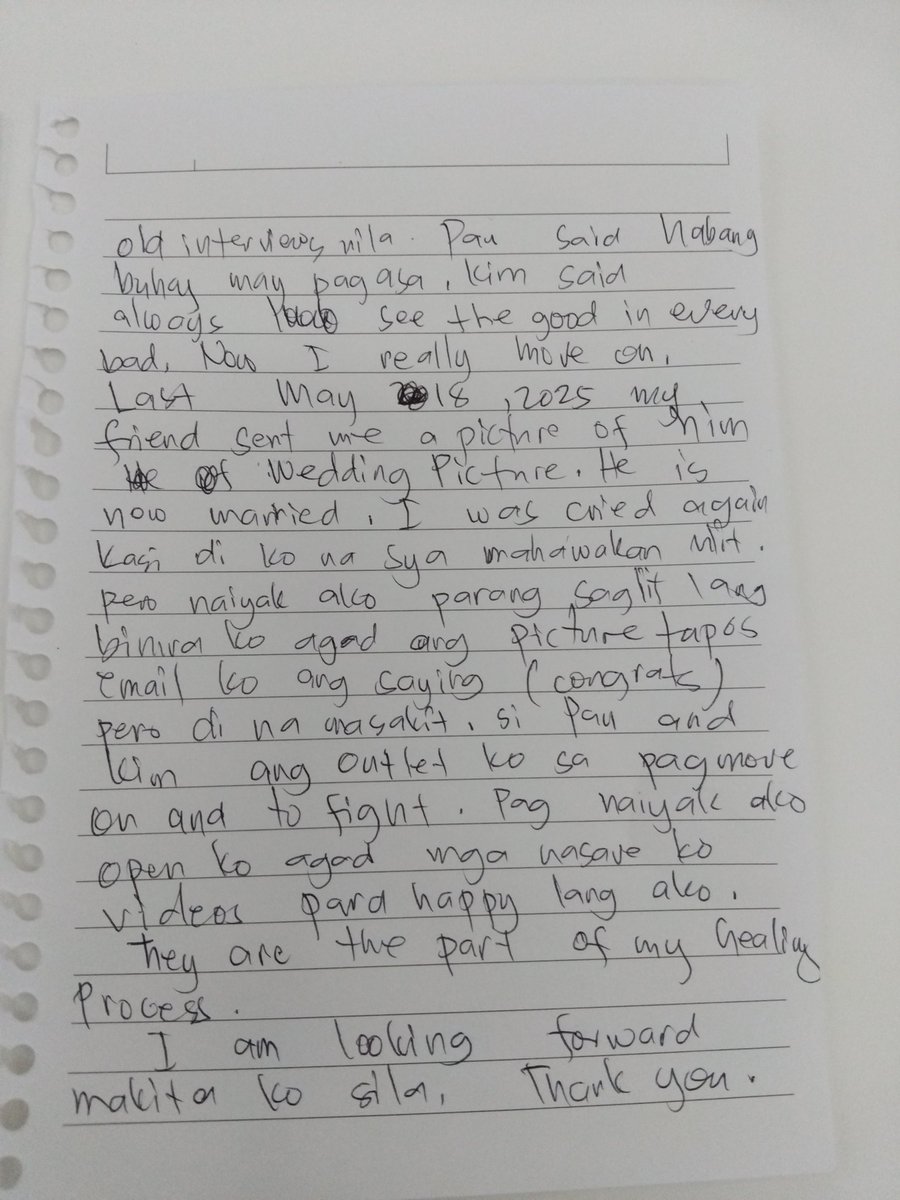 old interviews nila. Pau said habang
buhay may pagasa, Kim said
always see the good in every
bad, Now I really move on.
Last May 18, 2025 my
friend sent me a picture of him
of Wedding Picture. He is
now married. I was cried again
kasi di ko na sya mahawakan ulit.
pero naiyak ako parang saglit lang
binura ko agad ang picture tapos
email ko ang saying (congrats)
pero di na masakit. si Pau and
Kim ang outlet ko sa pagmove
on and to fight. Pag naiyak ako
open ko agad mga nasave ko
videos para happy lang ako.
They are the part of my healing
Process.
I am looking forward
makita ko sila, Thank you.